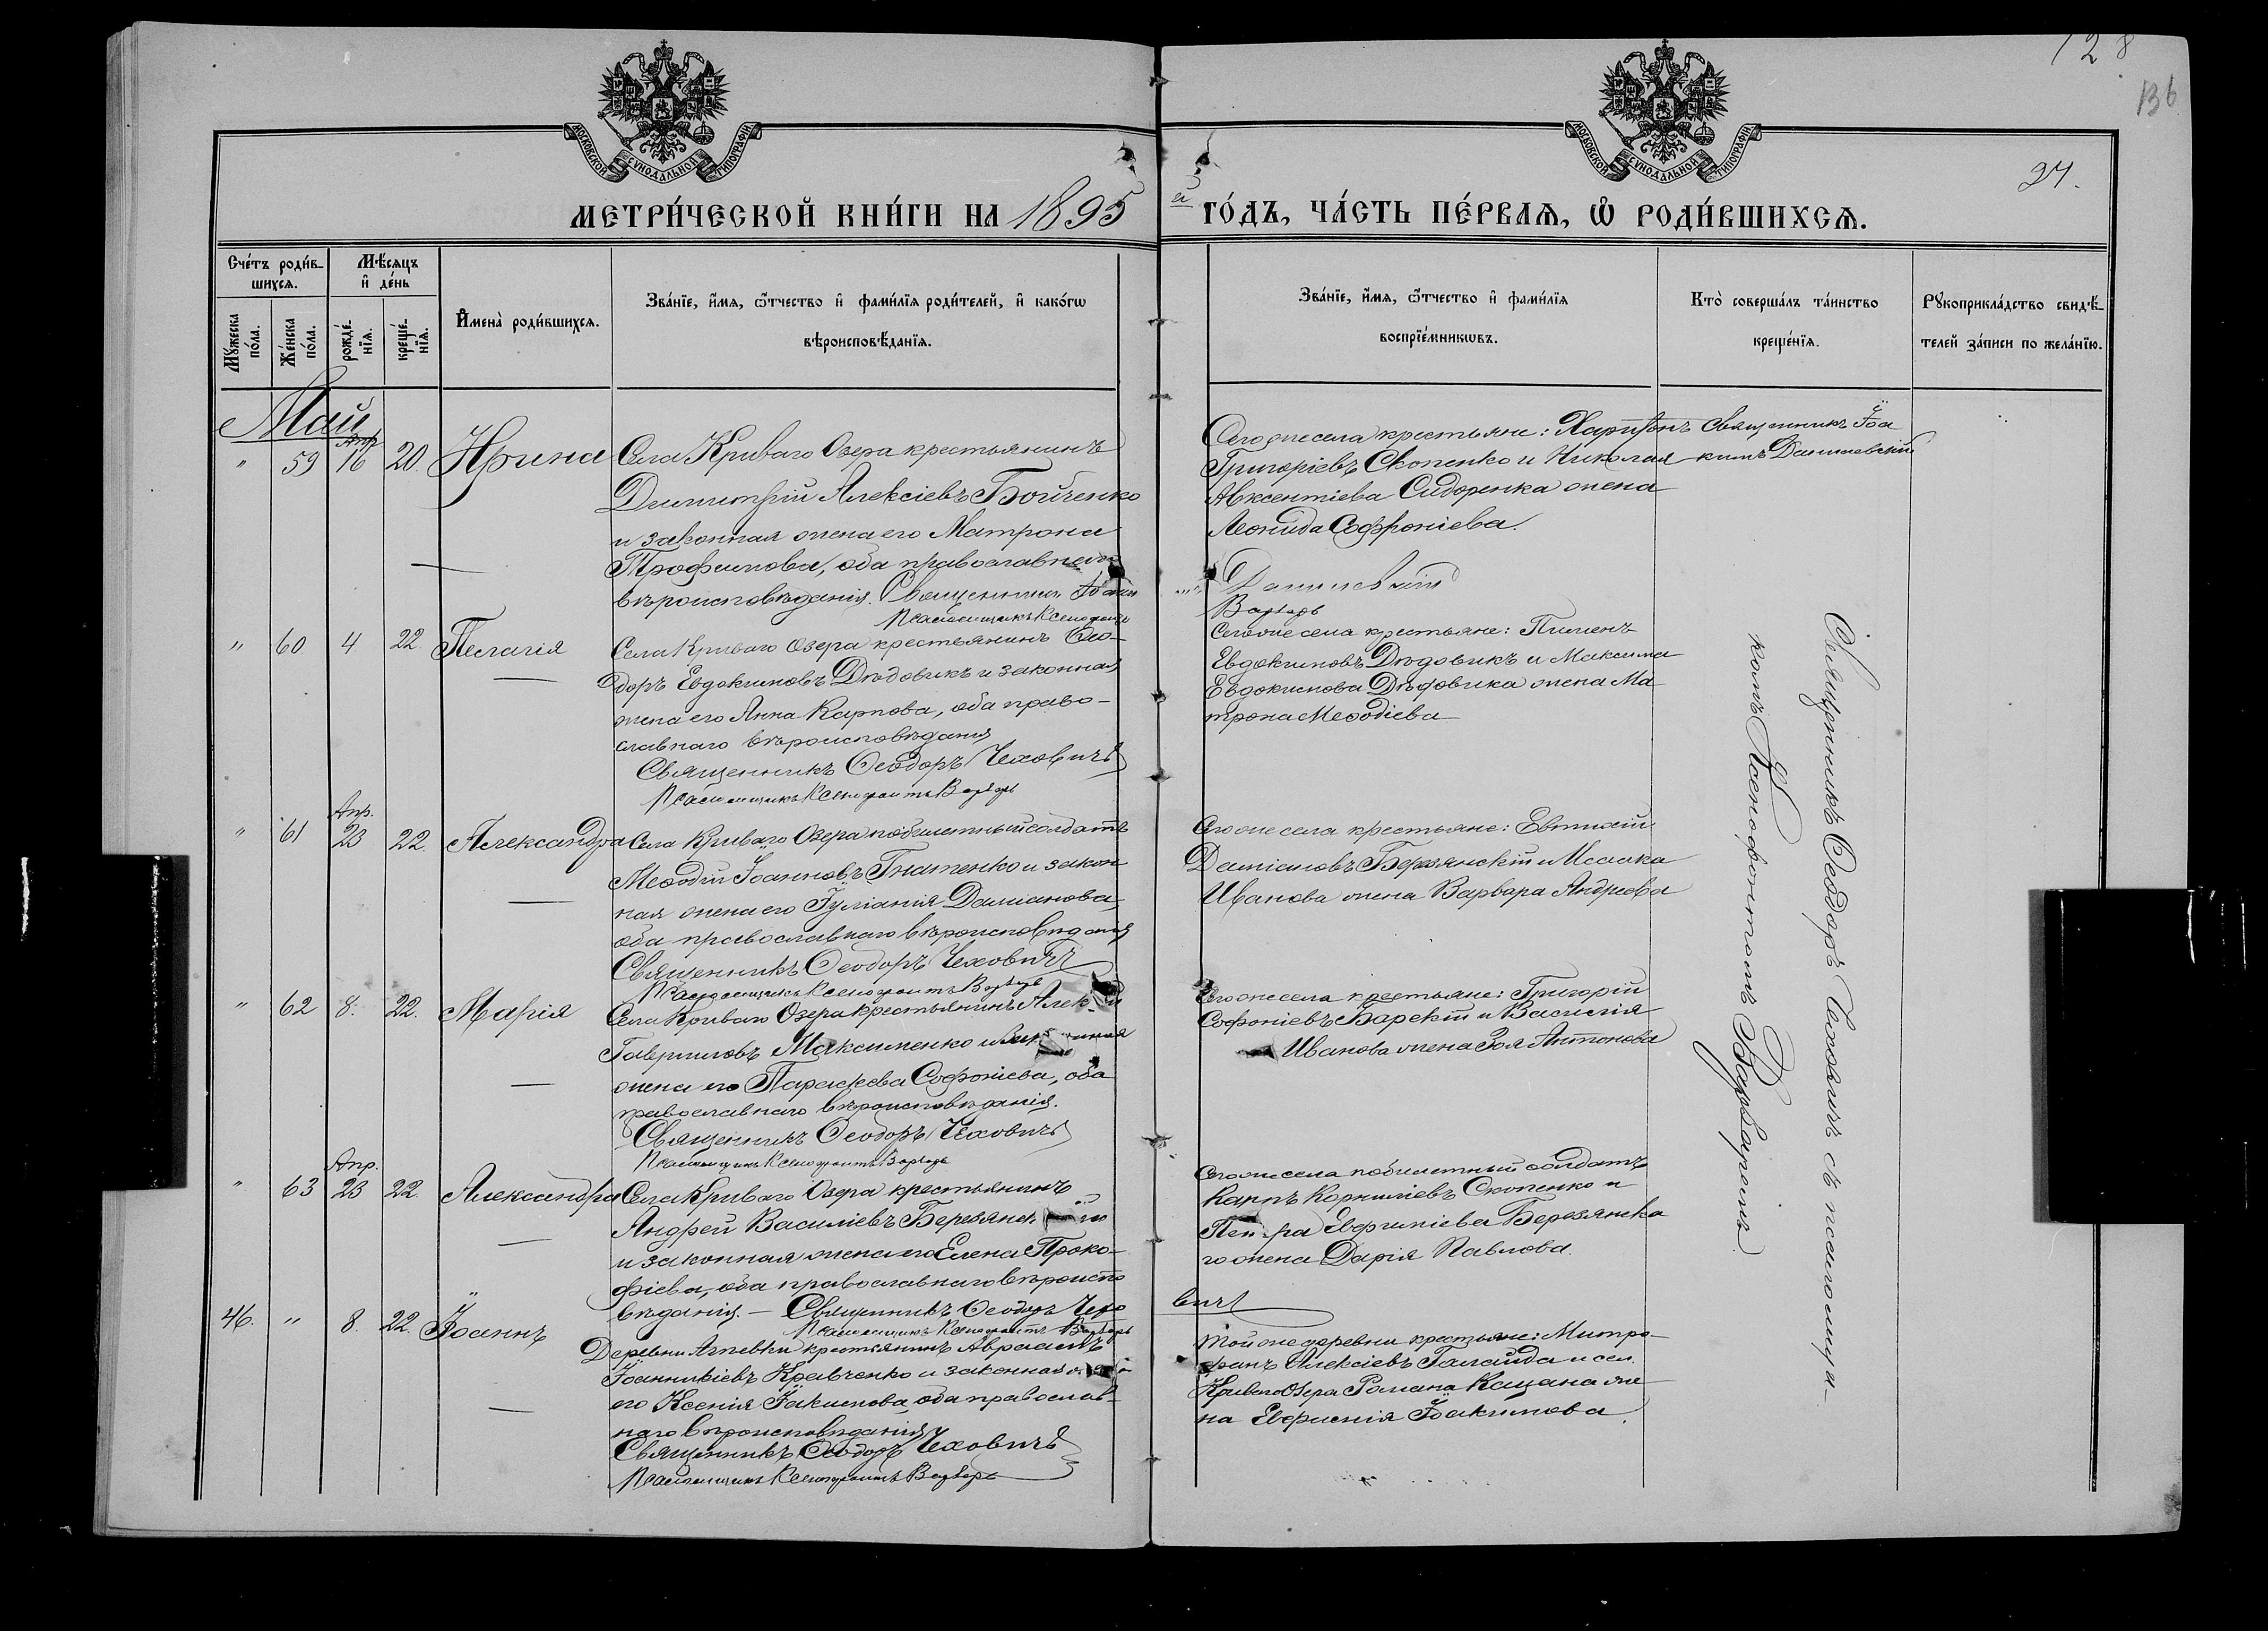 128
136
27.
МОСКОВСКОЙ СѴНОДАЛЬНОЙ ТИПОГРАФІИ
МОСКОВСКОЙ СѴНОДАЛЬНОЙ ТИПОГРАФІИ
МЕТРИ́ЧЕСКОЙ КНИ́ГИ НА 1895 й ГО́ДЪ, ЧА́СТЬ ПЕ́РВАѦ, Ѡ҆ РОДИ́ВШИХСѦ.
Сче́тъ роди́в-
шихсѧ.
Мꙋ́жеска по́ла.
Же́нска по́ла.
Мѣ́сѧцъ
и҆ де́нь
рожде́-
нїѧ.
креще́-
нїѧ.
И҆мена̀ роди́вшихсѧ.
Зва́нїе, и҆́мѧ, ѻ҆́тчество и҆ фами́лїѧ роди́телей, и҆ како́гѡ
вѣроисповѣ́данїѧ.
Зва́нїе, и҆́мѧ, ѻ҆́тчество и҆ фами́лїѧ
воспрїе́мникѡвъ.
Кто̀ соверша́лъ та́инство
креще́нїѧ.
Рꙋкоприкла́дство свидѣ́-
телей за́писи по жела́нїю.
Май
" 59 Апр 16 20 Ирина
Села Криваго Озера крестьянинъ
Димитрій Алексіевъ Бойченко
и законная жена его Матрона
Трофимова, оба православнаго
вѣроисповѣданія. Священникъ Іоаки
Данилевскій
Псаломщикъ Ксенофонтъ
Варваръ
Сего же села крестьяне: Харитонъ
Григоріевъ Скопенко и Николая
Авксентіева Сидоренка жена
Леонида Софроніева.
Священникъ Іоа
кимъ Данилевскій
" 60 4 22 Пелагія
Села Криваго Озера крестьянинъ Ѳео-
доръ Евдокимовъ Дѣдовикъ и законная
жена его Анна Карпова, оба право-
славнаго вѣроисповѣданія
Священникъ Ѳеодоръ Чеховичъ
Псаломщикъ Ксенофонтъ Варваръ
Сего же села крестьяне: Пименъ
Евдокимовъ Дѣдовикъ и Максима
Евдокимова Дѣдовика жена Ма
трона Меѳодіева
" 61 Апр. 23 22. Александра
Села Криваго Озера побилетный солдатъ
Меѳодій Іоанновъ Гнатенко и закон
ная жена его Іуліанія Даміанова,
оба православнаго вѣроисповѣданія
Священникъ Ѳеодоръ Чеховичъ
Псаломщикъ Ксенофонтъ Варваръ
Сего же села крестьяне: Евтихій
Даміановъ Березянскій и Исаака
Иванова жена Варвара Андреева
" 62 8. 22. Марія
Села Криваго Озера крестьянинъ Алек
Гавриловъ Максименко и законная
жена его Параскева Софоніева, оба
православнаго вѣроисповѣданія.
Священникъ Ѳеодоръ Чеховичъ
Псаломщикъ Ксенофонтъ Варваръ
Сего же села крестьяне: Григорій
Софоніевъ Барскій и Василія
Иванова жена Зоя Антонова
" 63 Апр. 23 22. Александра
Села Криваго Озера крестьянинъ
Андрей Василіевъ Березянск
и законная жена его Елена Проко-
фіева, оба православнаго вѣроиспо
вѣданія. — Священникъ Ѳеодоръ Чехо
вичъ
Псаломщикъ Ксенофонтъ Варваръ
Сего же села побилетный солдатъ
Карпъ Корниліевъ Скопенко и
Петра Евфиміева Березянска
го жена Дарія Павлова.
46. " 8. 22. Іоаннъ
Деревни крестьянинъ Авраамъ
Іоанникіевъ Кравченко и законная
его Ксенія Іакимова, оба православ-
наго вѣроисповѣданія
Священникъ Ѳеодоръ Чеховичъ
Псаломщикъ Ксенофонтъ Варваръ
Той же деревни крестьяне: Митро-
фанъ Алексіевъ Галайда и сел.
Криваго Озера Романа Кацана же
на Евфимія Іоакимова.
Священникъ Ѳеодоръ Чеховичъ съ псаломщи-
комъ Ксенофонтомъ Варваремъ.